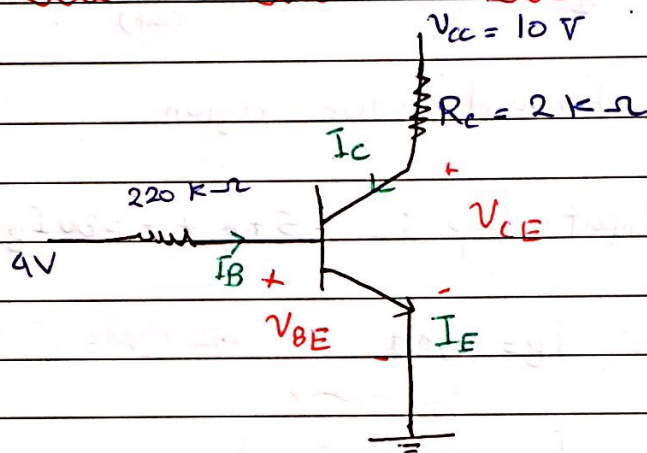 VCC = 10 V
RC = 2 kΩ
IC
+
220 kΩ
VCE
4V
IB
+
-
VBE
IE
-